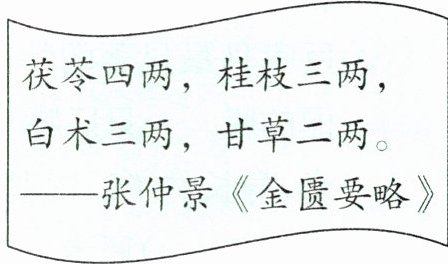 茯苓四两，桂枝三两，
白术三两，甘草二两。
——张仲景《金匮要略》